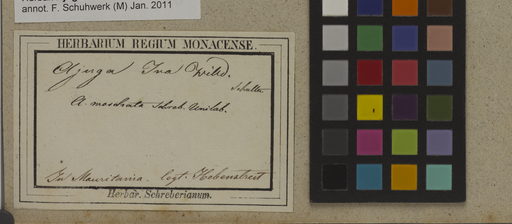 annot. F. Schuhwerk (M) Jan. 2011
HERBARIUM REGIUM MONACENSE.
Ajuga Iva Willd.
Schultes
A. moschata Schreb. Unilab.
In Mauritania. legt: Hebenstreit
Herbar. Schreberianum.